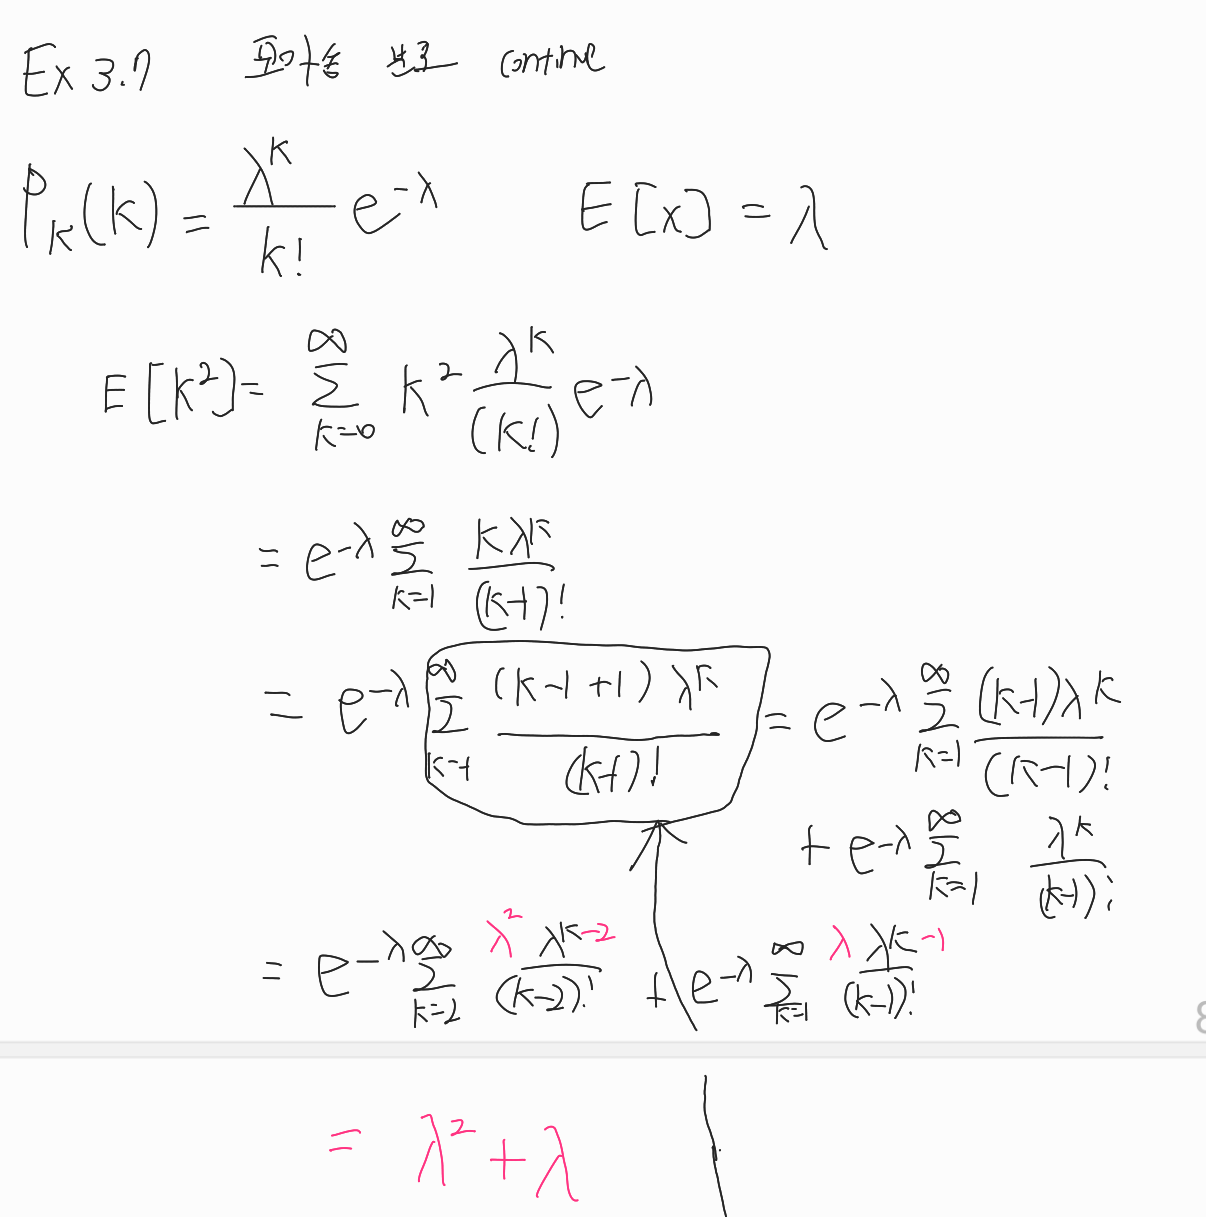 Ex 3.7 포아송 분포 continue
P_K(k) = λ^k / k! e^-λ    E[x] = λ
E[k^2] = ∑_{k=0}^{∞} k^2 λ^k / (k!) e^-λ
= e^-λ ∑_{k=1}^{∞} kλ^k / (k-1)!
= e^-λ ∑_{k=1}^{∞} (k-1+1) λ^k / (k-1)! = e^-λ ∑_{k=1}^{∞} (k-1)λ^k / (k-1)!
+ e^-λ ∑_{k=1}^{∞} λ^k / (k-1)!
= e^-λ ∑_{k=2}^{∞} λ^2 λ^{k-2} / (k-2)! + e^-λ ∑_{k=1}^{∞} λ λ^{k-1} / (k-1)!
= λ^2 + λ